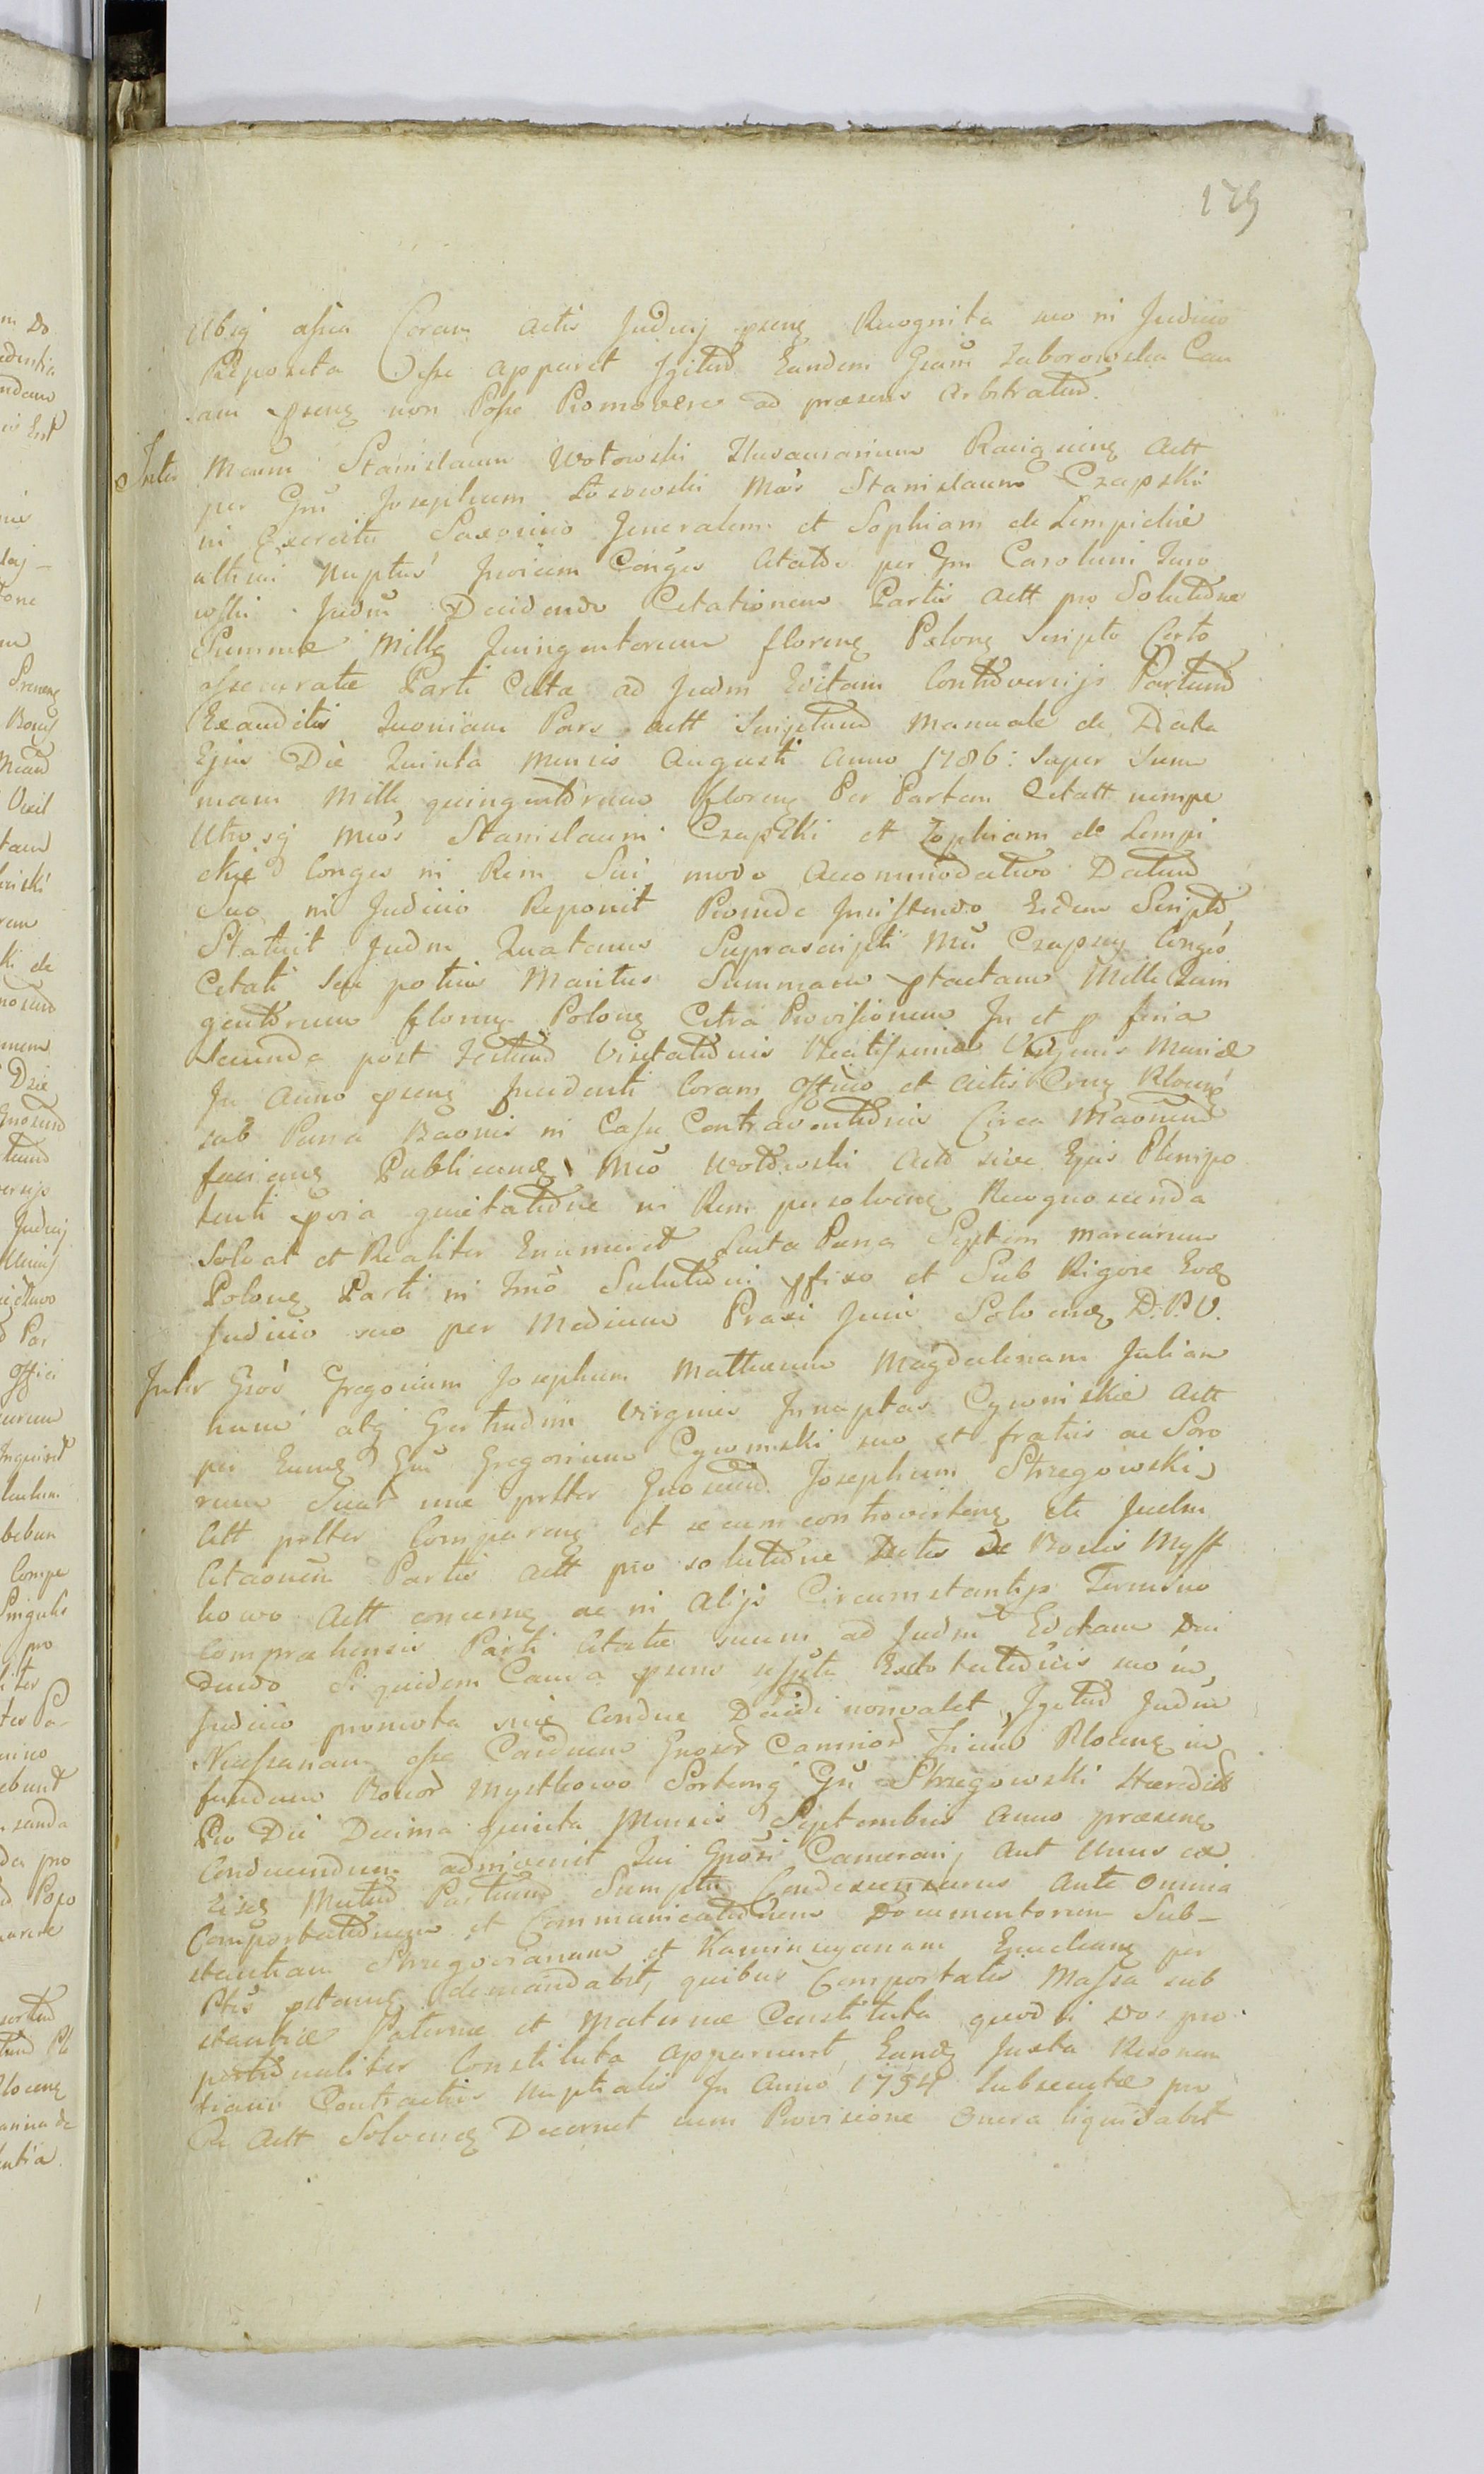 179
Ubiq asser Coram Actis Judicij psenq Recognita suo in Judicio
Reposita Esse apparet Igitur Eandem Gsam Zaborowska Cau
sam psenq non Posse Promovere ad praesens Arbitratur.
Inter Mcum Stanislaum Wołowski Thesaurarium Racigninq Actt
per Gm Josephum Lisowski Mcos Stanislaum Czapski
in Exercitu Saxonico Generalem et Sophiam de Lempickie
ultimi Nuptus Conges Citatos per Gm Carolum Zaro
wski Judm Decidendo Citationem Partis Actt pro Solutione
Summae Mille Quingentorum florenq Polonq Scripto Certo
assecuratae Parti Cittae ad Judm Editam Controversijs Partium
Exauditis Quoniam Pars Actt Scriptum Manuale de Data
Ejus Die Quinta Mensis Augusti Anno 1786: super Sum
mam Mille quingentorum florenq Per Partem Citatt nempe
Utrosq Mcos Stanislaum Czapski et Zophiam de Lempi
ckie Conges in Rem Sui modo Accommodativo Datum
Suo in Judicio Reponit Proinde Insistendo Eidem Scripto
Statuit Judm Quatenus Suprascripti Mci Czapscy Conges
Citati seu potius Maritus Summam ptactam Mille Quin
gentorum florenq Polonq Citra Provisionem In et p feria
Secunda post festum Visitationis Beatissimae Virginis Mariae
In Anno psenq Incidenti Coram Officio et Actis Crnq Plocensi
sub Paena Banni in Casu Contraventionis Circa
faciens Publicand Mco Wołowski Act sive Ejus Plenipo
tenti pvia quietatione in Rem persolvenq Recognoscenda
Solvat et Realiter Enumeret Juxta Paena Septem marcarum
Polonq Parti in Tmo Solutioni pfixo et Sub Rigore
Judicio suo per Medium Praxi Juris Solvend D.P.V.
Inter Gsos Gregorium Josephum Mathaeum Magdalenam Julian
nam atq Gertrudim Virgines Innuptas Cywinskie Actt
per Eund Gm Gregorium Cywinski suo et fratris ac Soro
rum Suar nne prltter Gnosum Josephum Strzegowski
Citt prltter Comparenq et secum controvertenq Ctt Judm
Citaonem Partis Actt pro solutione Dotis de Bonis Myst
kowo Actt concernq ac in Alijs Circumstantijs Termino
Comprahensis Parti Citatae suum ad Judm Editam Deci
dendo Siquidem Causa psens suo in
Judicio promota sine Condne Decidi nonvalet, Igitur Judm
Necessariam esse Conducere Gnosor Camnior Trium Plocenq in
fundum Bonor Mystkowo Sortemq Gsi Strzegowski Haeredis
Pro Die Decima Quinta Mensis Septembris Anno praesenq
Conducendum adinvenit Qui Gnosi Camerarij Aut Unus ex
Eisq Mutuo Partium Sumptu Condescensurus Ante Omnia
Comportationem et Communicationem Documentorum Sub-
stantiam Strzegocianam et Kaminscyanam per
Ptes demandabit, quibus Comportatis Massa sub
stantiae Paternae et Maternae Constituta quod si Dos pro
portionaliter Constituta apparuerit, Eand Juxta Resonan
tiam Contractus Nuptialis In Anno 1754 Subsecutae pro
Pte Actt Solvend Decernet cum Provisione Onera liquidabit